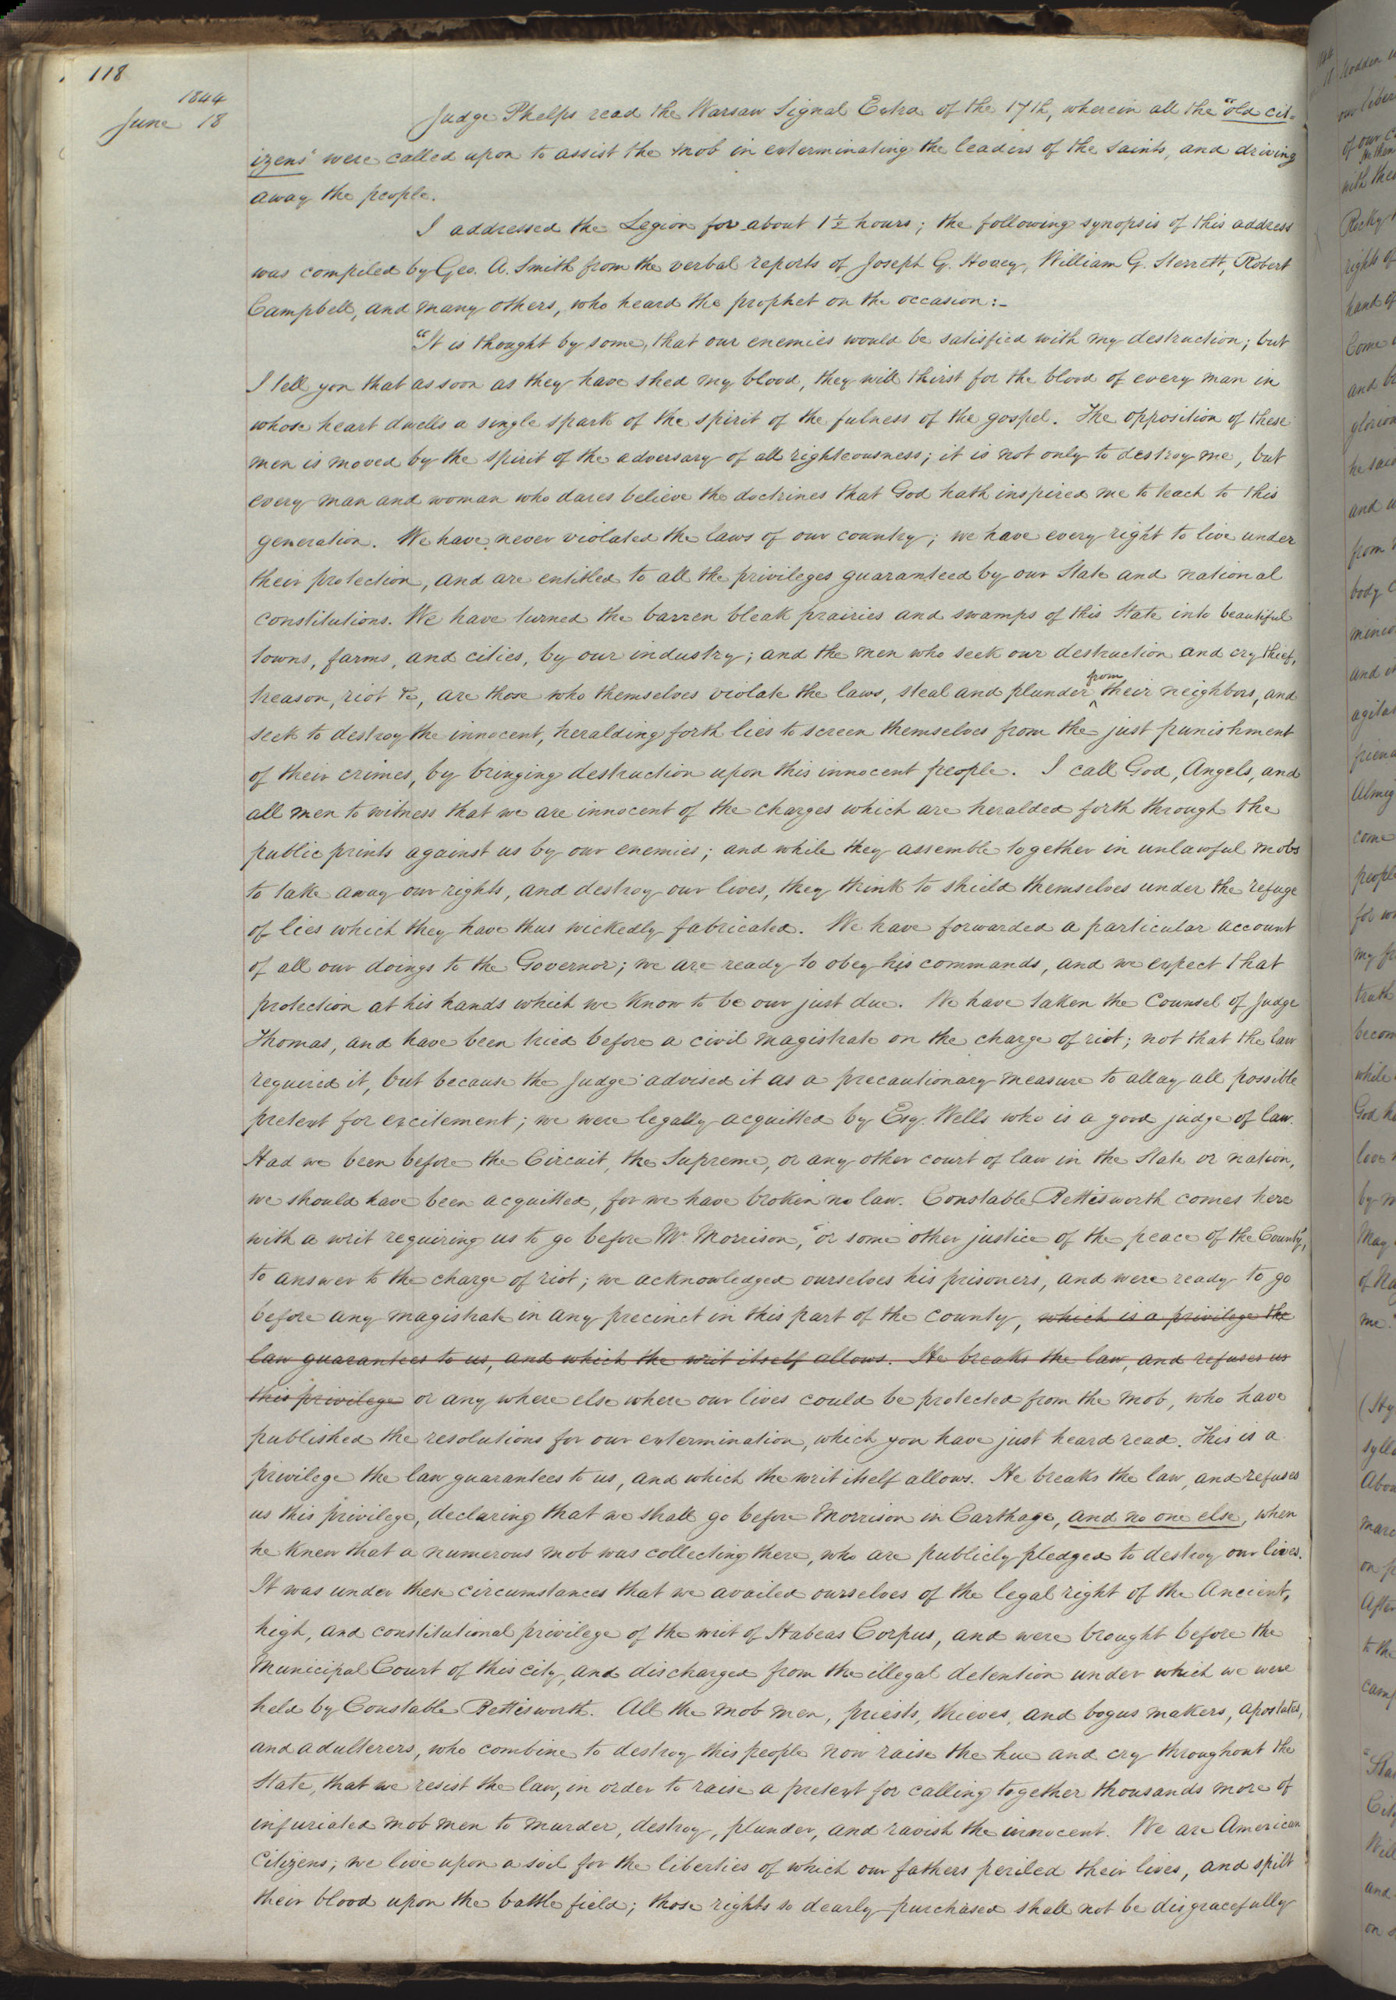 118
1844
June 18
Judge Phelps read the Warsaw Signal Extra of the 17th, wherein all the "old cit-
izens" were called upon to assist the mob in exterminating the leaders of the saints, and driving
away the people.
I addressed the Legion for about 1½ hours; the following synopsis of this address
was compiled by Geo. A. Smith from the verbal reports of Joseph G. Hovey, William G. Sterrett, Robert
Campbell, and many others, who heard the prophet on the occasion:-
"It is thought by some, that our enemies would be satisfied with my destruction; but
I tell you that as soon as they have shed my blood, they will thirst for the blood of every man in
whose heart dwells a single spark of the spirit of the fulness of the gospel. The opposition of these
men is moved by the spirit of the adversary of all righteousness; it is not only to destroy me, but
every man and woman who dares believe the doctrines that God hath inspired me to teach to this
generation. We have never violated the laws of our country; we have every right to live under
their protection, and are entitled to all the privileges guaranteed by our State and national
constitutions. We have turned the barren bleak prairies and swamps of this State into beautiful
towns, farms, and cities, by our industry; and the men who seek our destruction and cry thief,
treason, riot &c, are those who themselves violate the laws, steal and plunder from their neighbors, and
seek to destroy the innocent, heralding forth lies to screen themselves from the just punishment
of their crimes, by bringing destruction upon this innocent people. I call God, Angels, and
all men to witness that we are innocent of the charges which are heralded forth through the
public prints against us by our enemies; and while they assemble together in unlawful mobs
to take away our rights, and destroy our lives, they think to shield themselves under the refuge
of lies which they have thus wickedly fabricated. We have forwarded a particular account
of all our doings to the Governor; we are ready to obey his commands, and we expect that
protection at his hands which we know to be our just due. We have taken the counsel of Judge
Thomas, and have been tried before a civil magistrate on the charge of riot; not that the law
required it, but because the Judge advised it as a precautionary measure to allay all possible
pretext for excitement; we were legally acquitted by Esq. Wells who is a good judge of law.
Had we been before the Circuit, the Supreme, or any other court of law in the State or nation,
we should have been acquitted, for we have broken no law. Constable Bettisworth comes here
with a writ requiring us to go before Mr. Morrison, "or some other justice of the peace of the County",
to answer to the charge of riot; we acknowledged ourselves his prisoners, and were ready to go
before any magistrate in any precinct in this part of the county, which is a privilege the
law guarantees to us, and which the writ itself allows. He breaks the law, and refuses us
this privilege or any where else where our lives could be protected from the mob, who have
published the resolutions for our extermination, which you have just heard read. This is a
privilege the law guarantees to us, and which the writ itself allows. He breaks the law, and refuses
us this privilege, declaring that we shall go before Morrison in Carthage, and no one else, when
he knew that a numerous mob was collecting there, who are publicly pledged to destroy our lives.
It was under these circumstances that we availed ourselves of the legal right of the Ancient,
high, and constitutional privilege of the writ of Habeas Corpus, and were brought before the
Municipal Court of this city, and discharged from the illegal detention under which we were
held by Constable Bettisworth. All the mob men, priests, thieves, and bogus makers, apostates,
and adulterers, who combine to destroy this people now raise the hue and cry throughout the
State, that we resist the law, in order to raise a pretext for calling together thousands more of
infuriated mob men to murder, destroy, plunder, and ravish the innocent. We are American
Citizens; we live upon a soil for the liberties of which our fathers periled their lives, and spilt
their blood upon the battle field; those rights so dearly purchased shall not be disgracefully